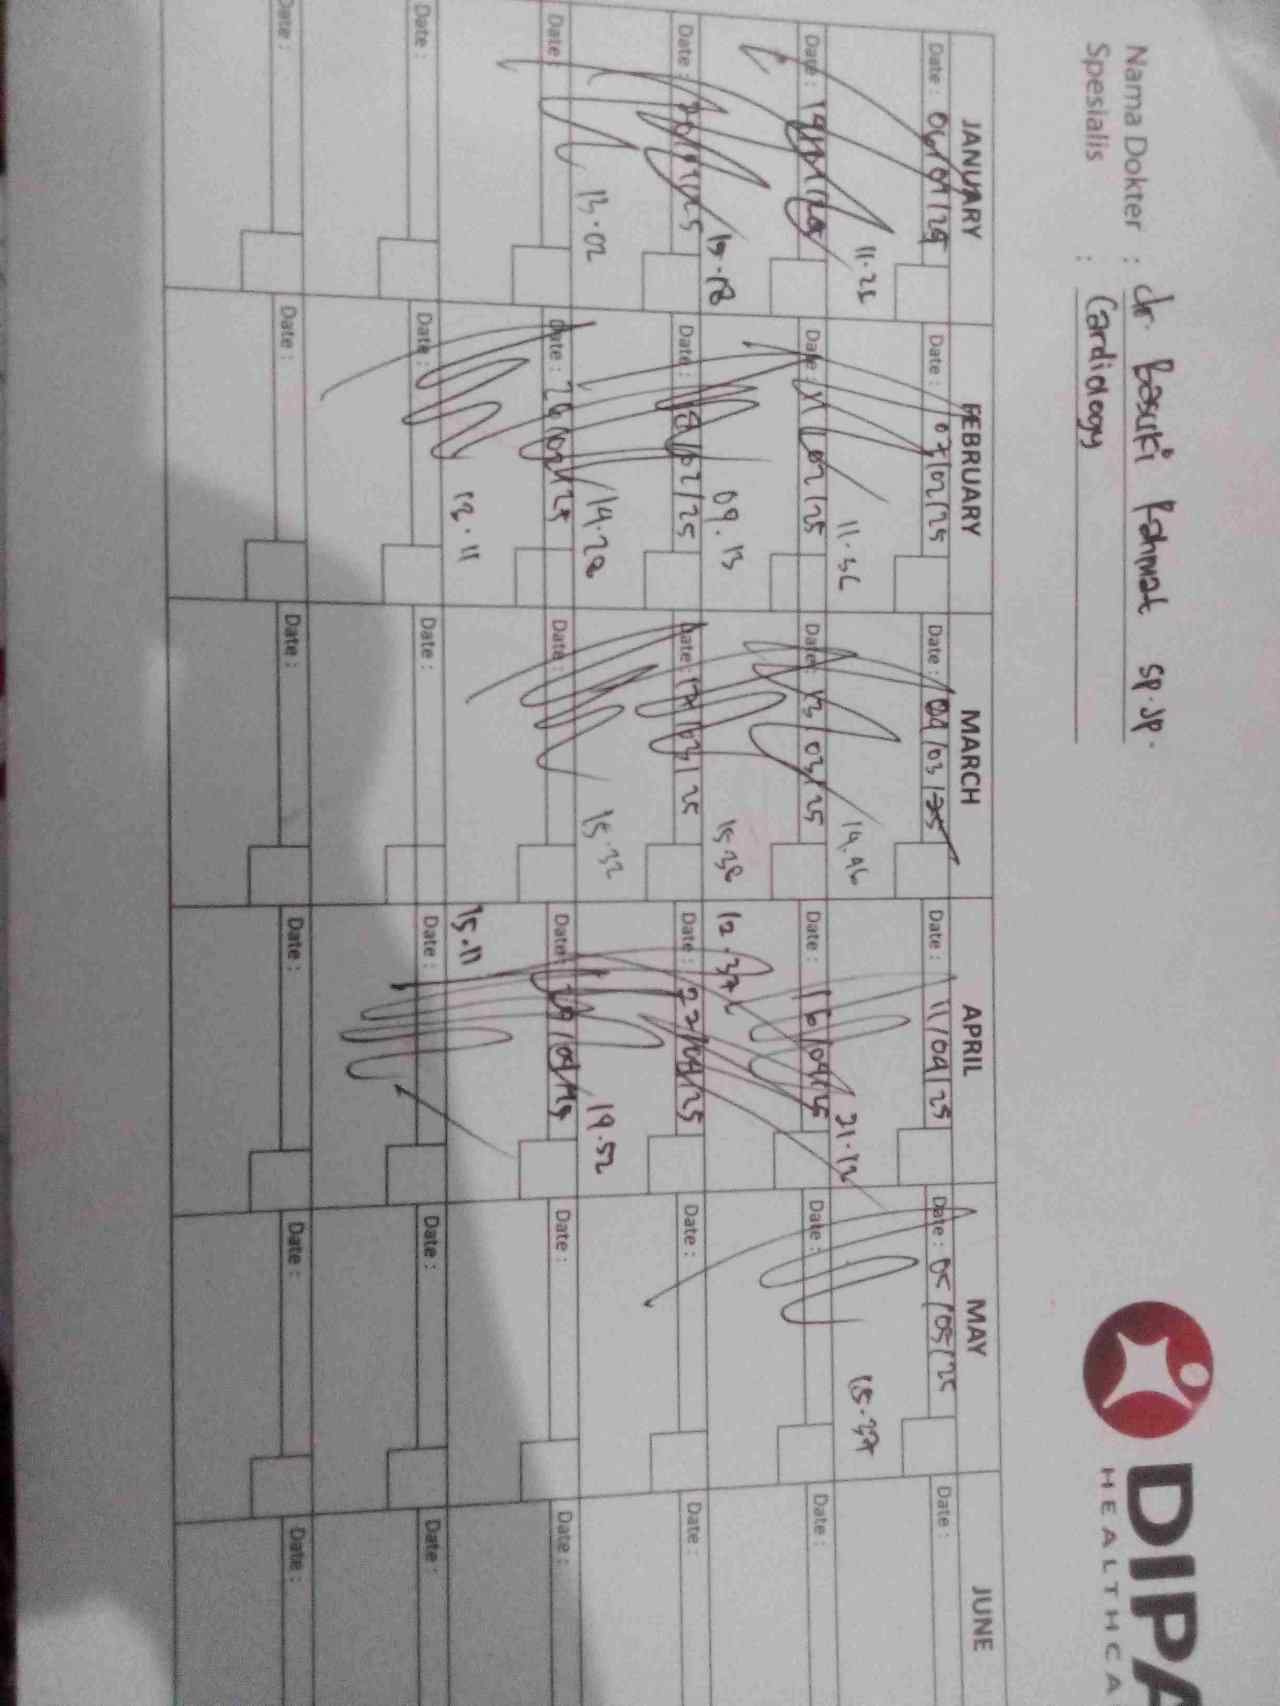 DIPA
HEALTHCA
Nama Dokter : dr. Basuki Rahmat sp.Jp.
Spesialis : Cardiology
JANUARY FEBRUARY MARCH APRIL MAY JUNE
Date : 06/01/25 Date : 07/02/25 Date : 04/03/25 Date : 11/04/25 Date : 05/05/25 Date :
11.25 11.36 14.46 21.12 15.37
Date : Date : 11/02/25 Date : 13/03/25 Date : 16/04/25 Date : Date :
09.13 15.38 12.37
Date : 20/01/25 Date : 18/02/25 Date : 17/03/25 Date : 22/04/25 Date : Date :
13.02 14.28 15.32 19.52
Date : Date : 26/02/25 Date : Date : Date : Date :
13.11 15.11
Date : Date : Date : Date : Date : Date :
Date : Date : Date : Date : Date : Date :